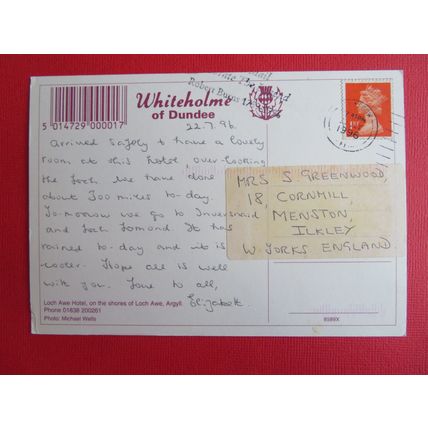 Whiteholme
of Dundee
5 014729 000017
Robert Burns
1996
1ST
22.7.96.
Arrived safely & have a lovely
room at this hotel, over-looking
the loch. We have done
about 300 miles to-day.
To-morrow we go to Inversnaid
and Loch Lomond. It has
rained to-day and it is
cooler. Hope all is well
with you. Love to all,
Elizabeth
MRS S GREENWOOD,
18, CORNHILL,
MENSTON,
ILKLEY
W. YORKS ENGLAND
Loch Awe Hotel, on the shores of Loch Awe, Argyll.
Phone 01838 200261
Photo: Michael Wells
8589X